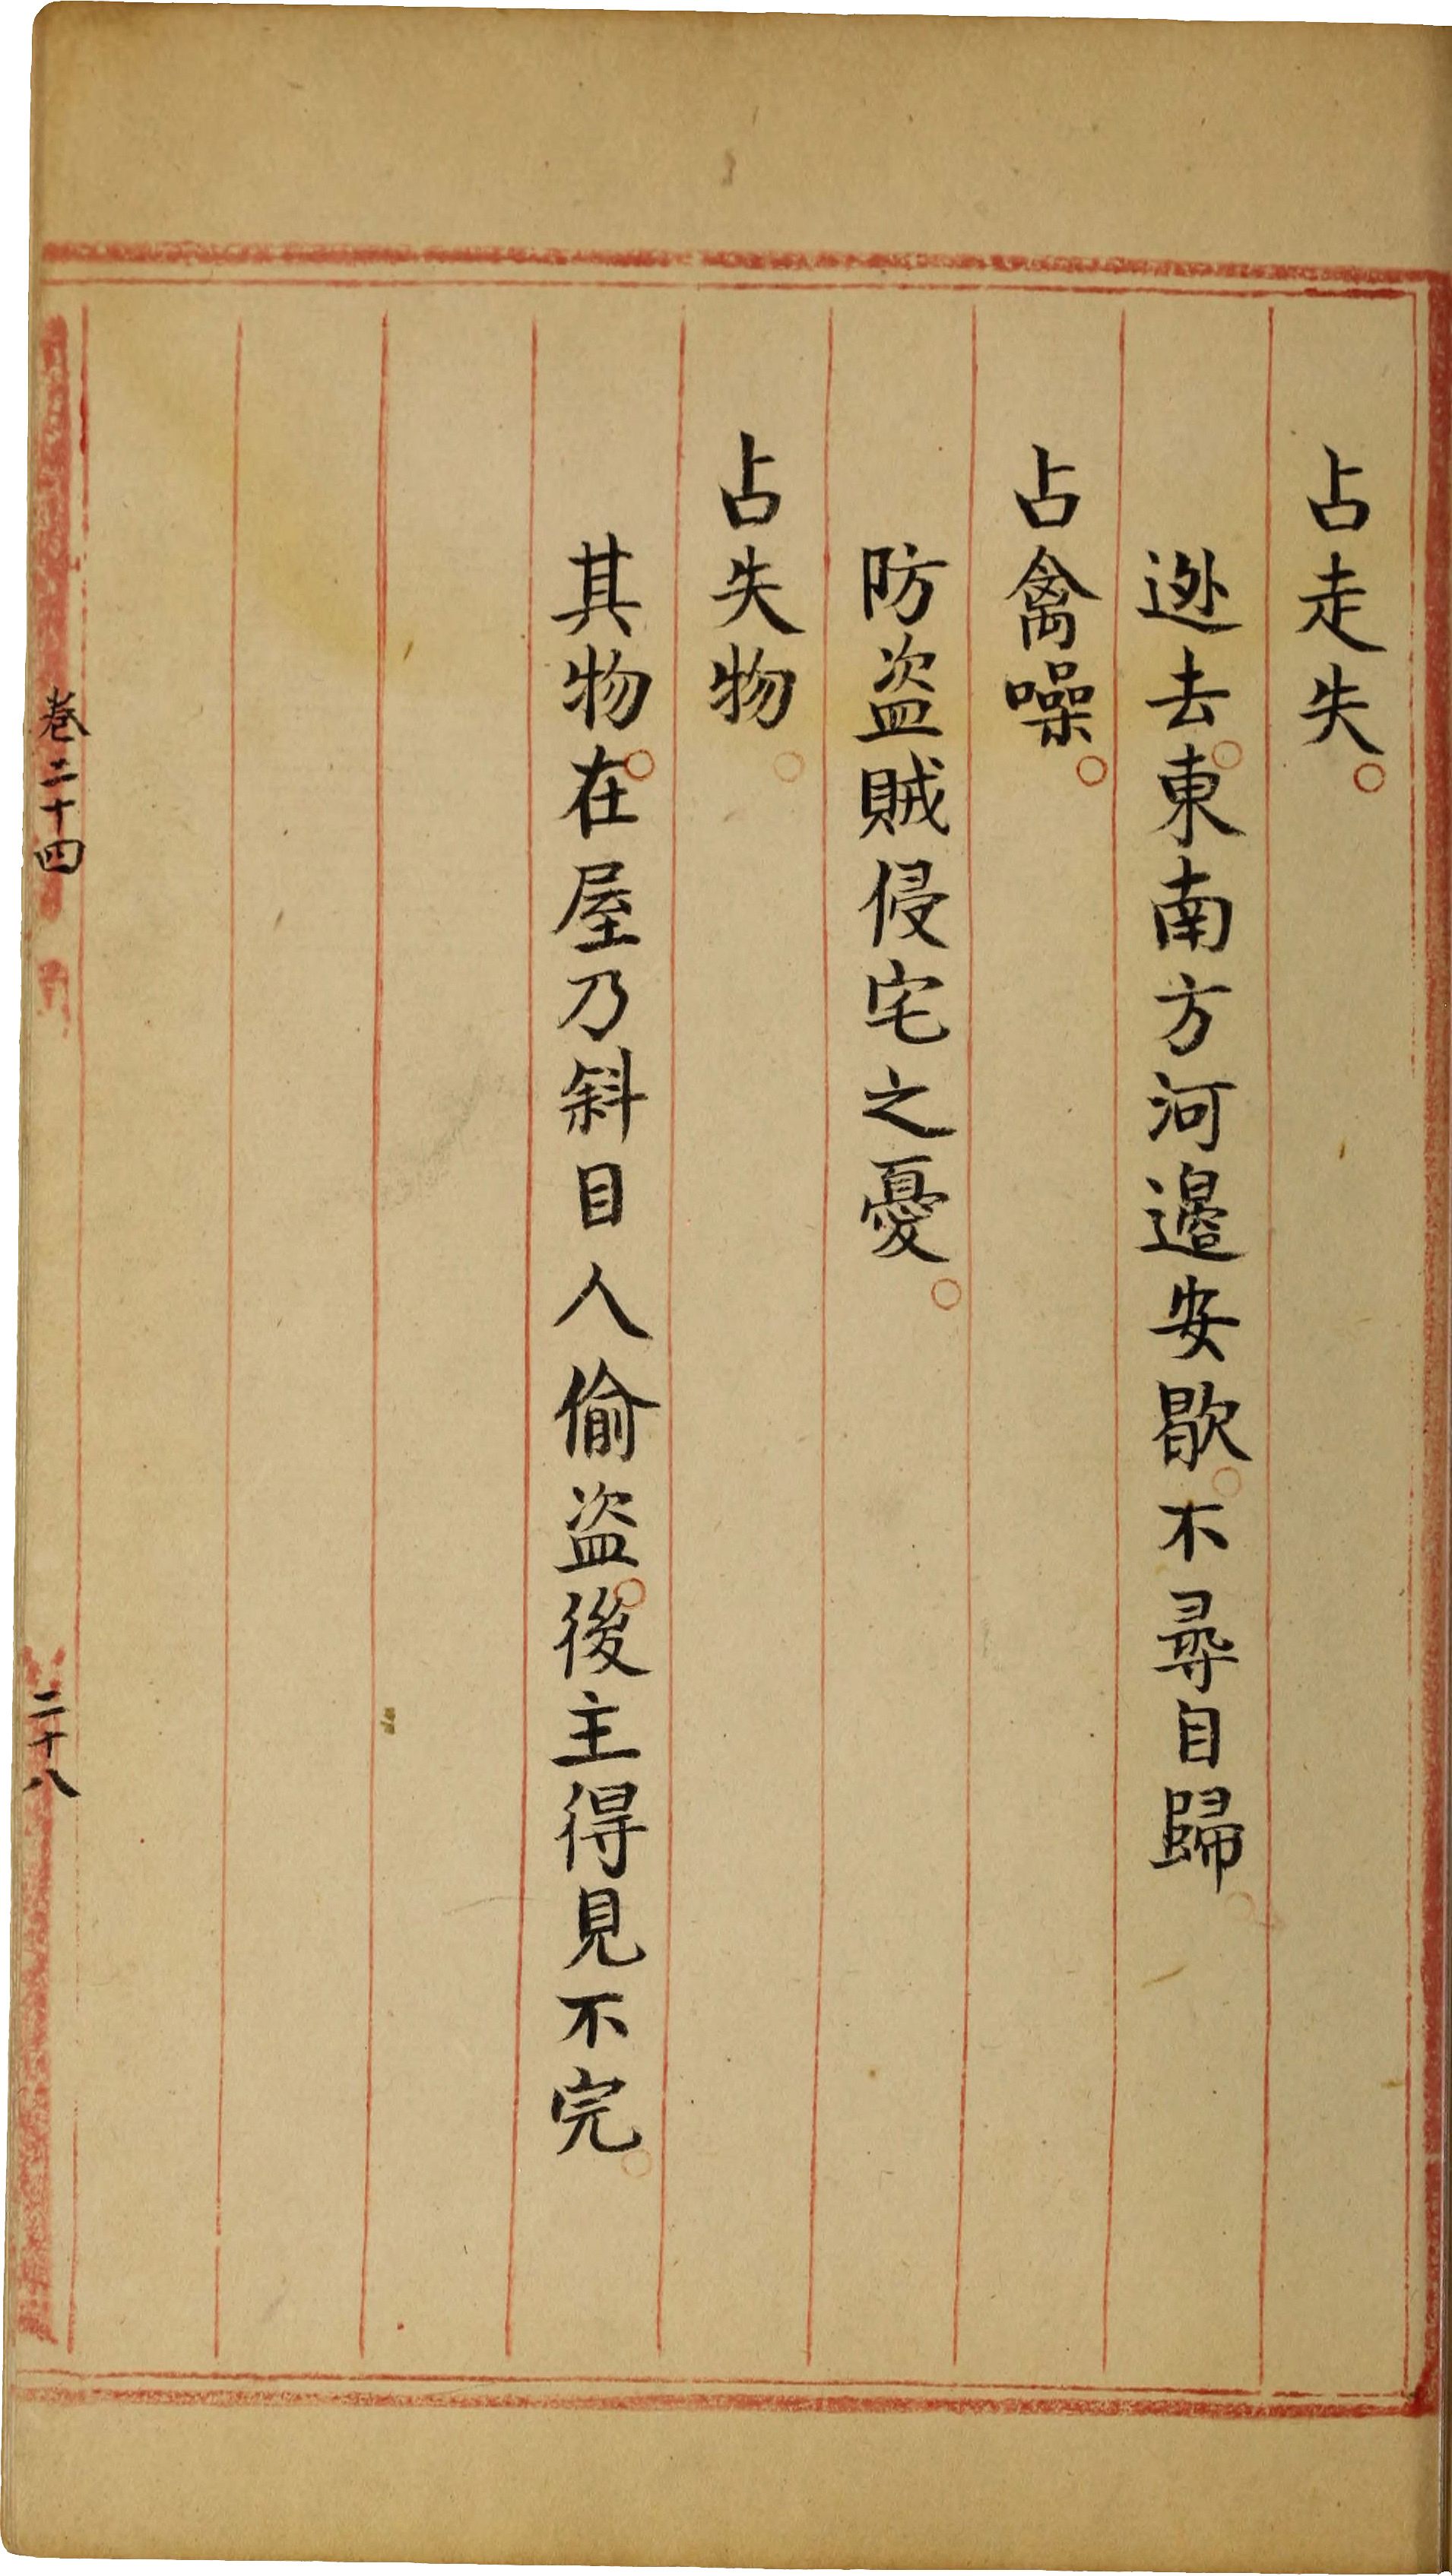 占走失。
迯去。東南方河邊安歇。不尋自歸。
占禽噪。
防盗賊侵宅之憂。
占失物。
其物。在屋乃斜目人偷盗。後主得見不完。
卷二十四
二十八